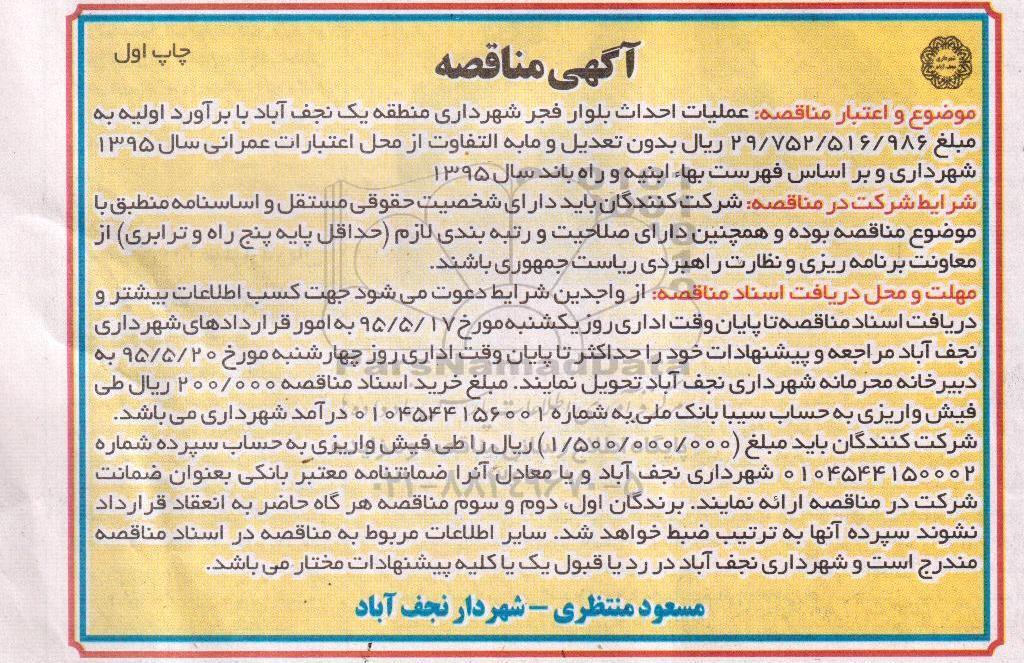 چاپ اول
آگهی مناقصه
شهرداری
نجف آباد
موضوع و اعتبار مناقصه: عملیات احداث بلوار فجر شهرداری منطقه یک نجف آباد با برآورد اولیه به
مبلغ ۲۹/۷۵۲/۵۱۶/۹۸۶ ریال بدون تعدیل و مابه التفاوت از محل اعتبارات عمرانی سال ۱۳۹۵
شهرداری و بر اساس فهرست بهاء ابنیه و راه باند سال ۱۳۹۵
شرایط شرکت در مناقصه: شرکت کنندگان باید دارای شخصیت حقوقی مستقل و اساسنامه منطبق با
موضوع مناقصه بوده و همچنین دارای صلاحیت و رتبه بندی لازم (حداقل پایه پنج راه و ترابری) از
معاونت برنامه ریزی و نظارت راهبردی ریاست جمهوری باشند.
مهلت و محل دریافت اسناد مناقصه: از واجدین شرایط دعوت می شود جهت کسب اطلاعات بیشتر و
دریافت اسناد مناقصه تا پایان وقت اداری روز یکشنبه مورخ ۹۵/۵/۱۷ به امور قراردادهای شهرداری
نجف آباد مراجعه و پیشنهادات خود را حداکثر تا پایان وقت اداری روز چهارشنبه مورخ ۹۵/۵/۲۰ به
دبیرخانه محرمانه شهرداری نجف آباد تحویل نمایند. مبلغ خرید اسناد مناقصه ۲۰۰/۰۰۰ ریال طی
فیش واریزی به حساب سیبا بانک ملی به شماره ۰۱۰۴۵۴۴۱۵۶۰۰۱ درآمد شهرداری می باشد.
شرکت کنندگان باید مبلغ (۱/۵۰۰/۰۰۰/۰۰۰) ریال را طی فیش واریزی به حساب سپرده شماره
۰۱۰۴۵۴۴۱۵۰۰۰۲ شهرداری نجف آباد و یا معادل آنرا ضمانتنامه معتبر بانکی بعنوان ضمانت
شرکت در مناقصه ارائه نمایند. برندگان اول، دوم و سوم مناقصه هر گاه حاضر به انعقاد قرارداد
نشوند سپرده آنها به ترتیب ضبط خواهد شد. سایر اطلاعات مربوط به مناقصه در اسناد مناقصه
مندرج است و شهرداری نجف آباد در رد یا قبول یک یا کلیه پیشنهادات مختار می باشد.
مسعود منتظری – شهردار نجف آباد
ParsNamadData